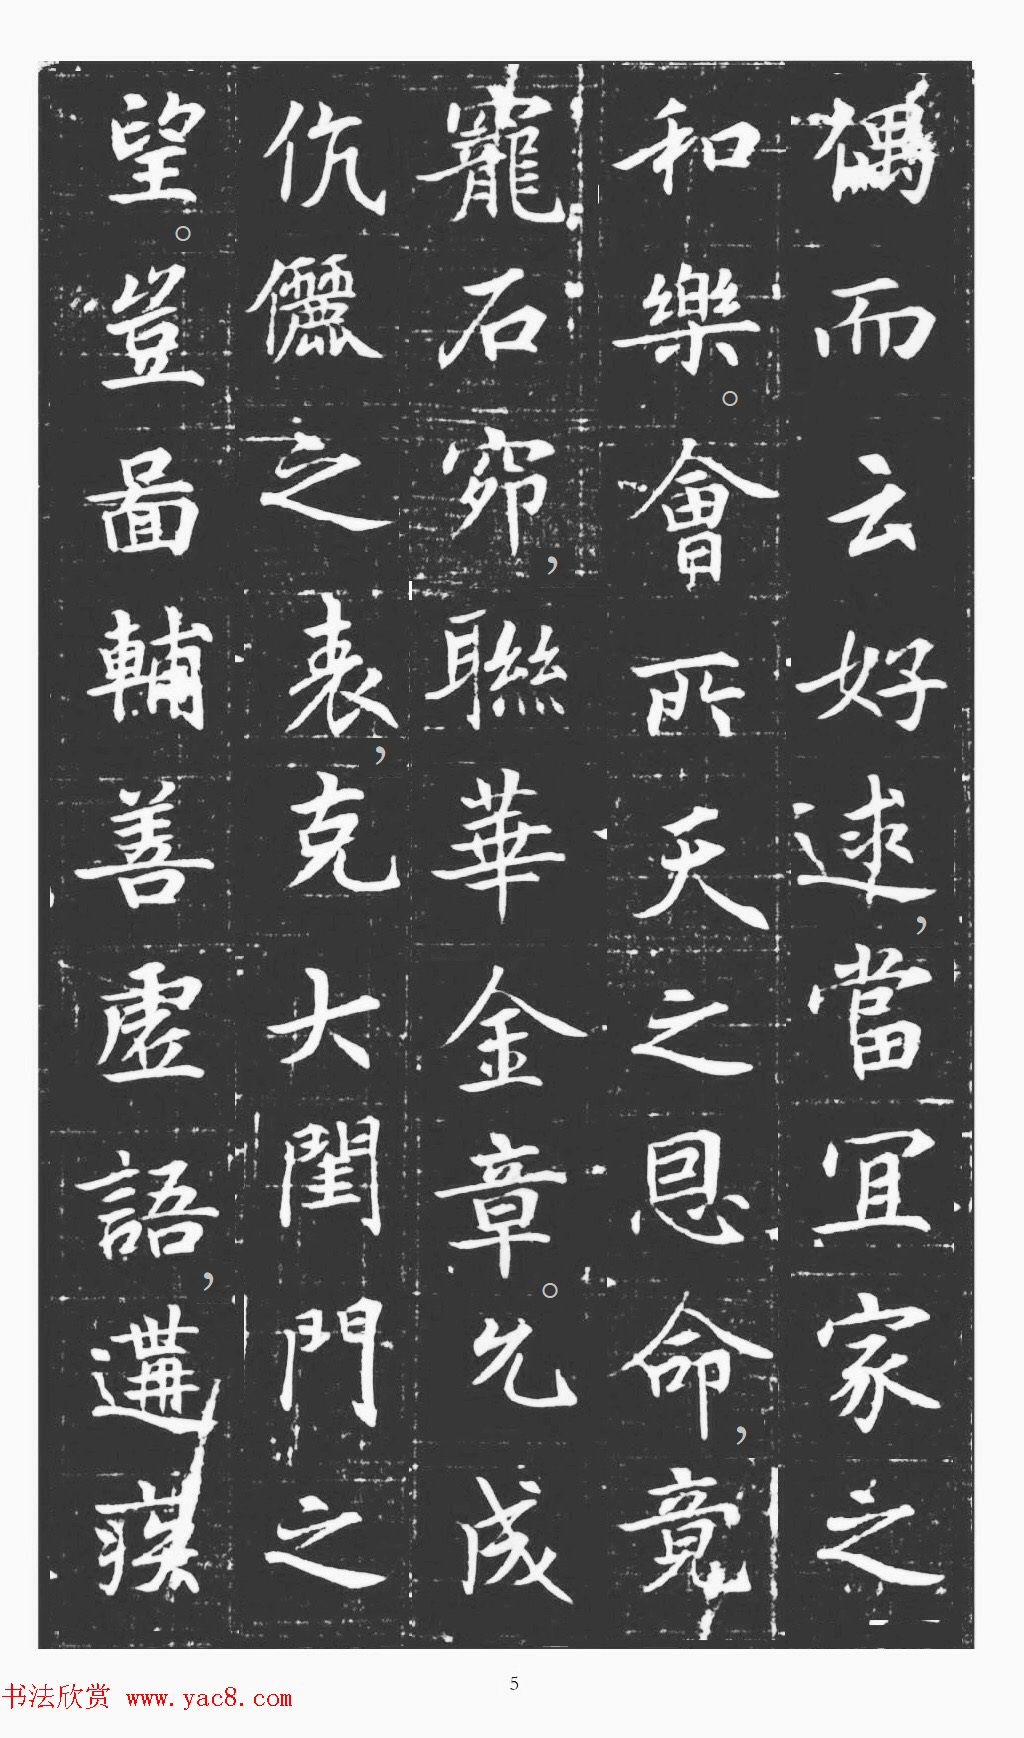 而云好逑，當宜家之
和樂。會所天之恩命，竟
寵石窌，聯華金章。允成
伉儷之表，克大閨門之
望。豈圖輔善虛語，遘疾
5
书法欣赏 www.yac8.com